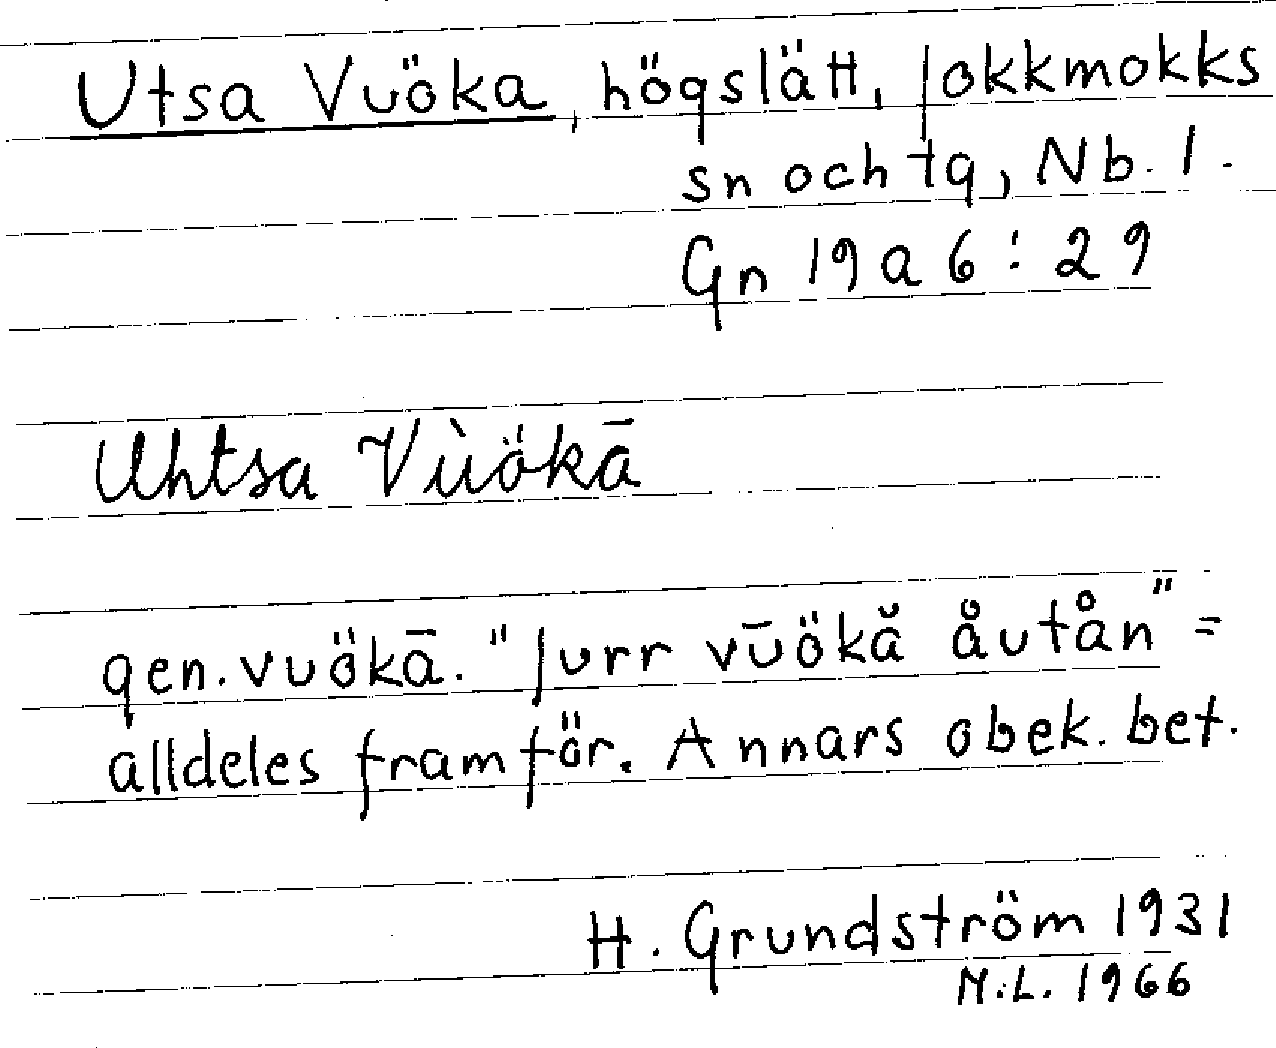 Utsa Vuöka, högslätt, Jokkmokks
sn och tg, Nb. l.
Gn 19 a 6 : 29
Uhtsa Vùökā
gen. vuökā. "Jurr vūökă åutån" =
alldeles framför. Annars obek. bet.
H. Grundström 1931
M.L. 1966